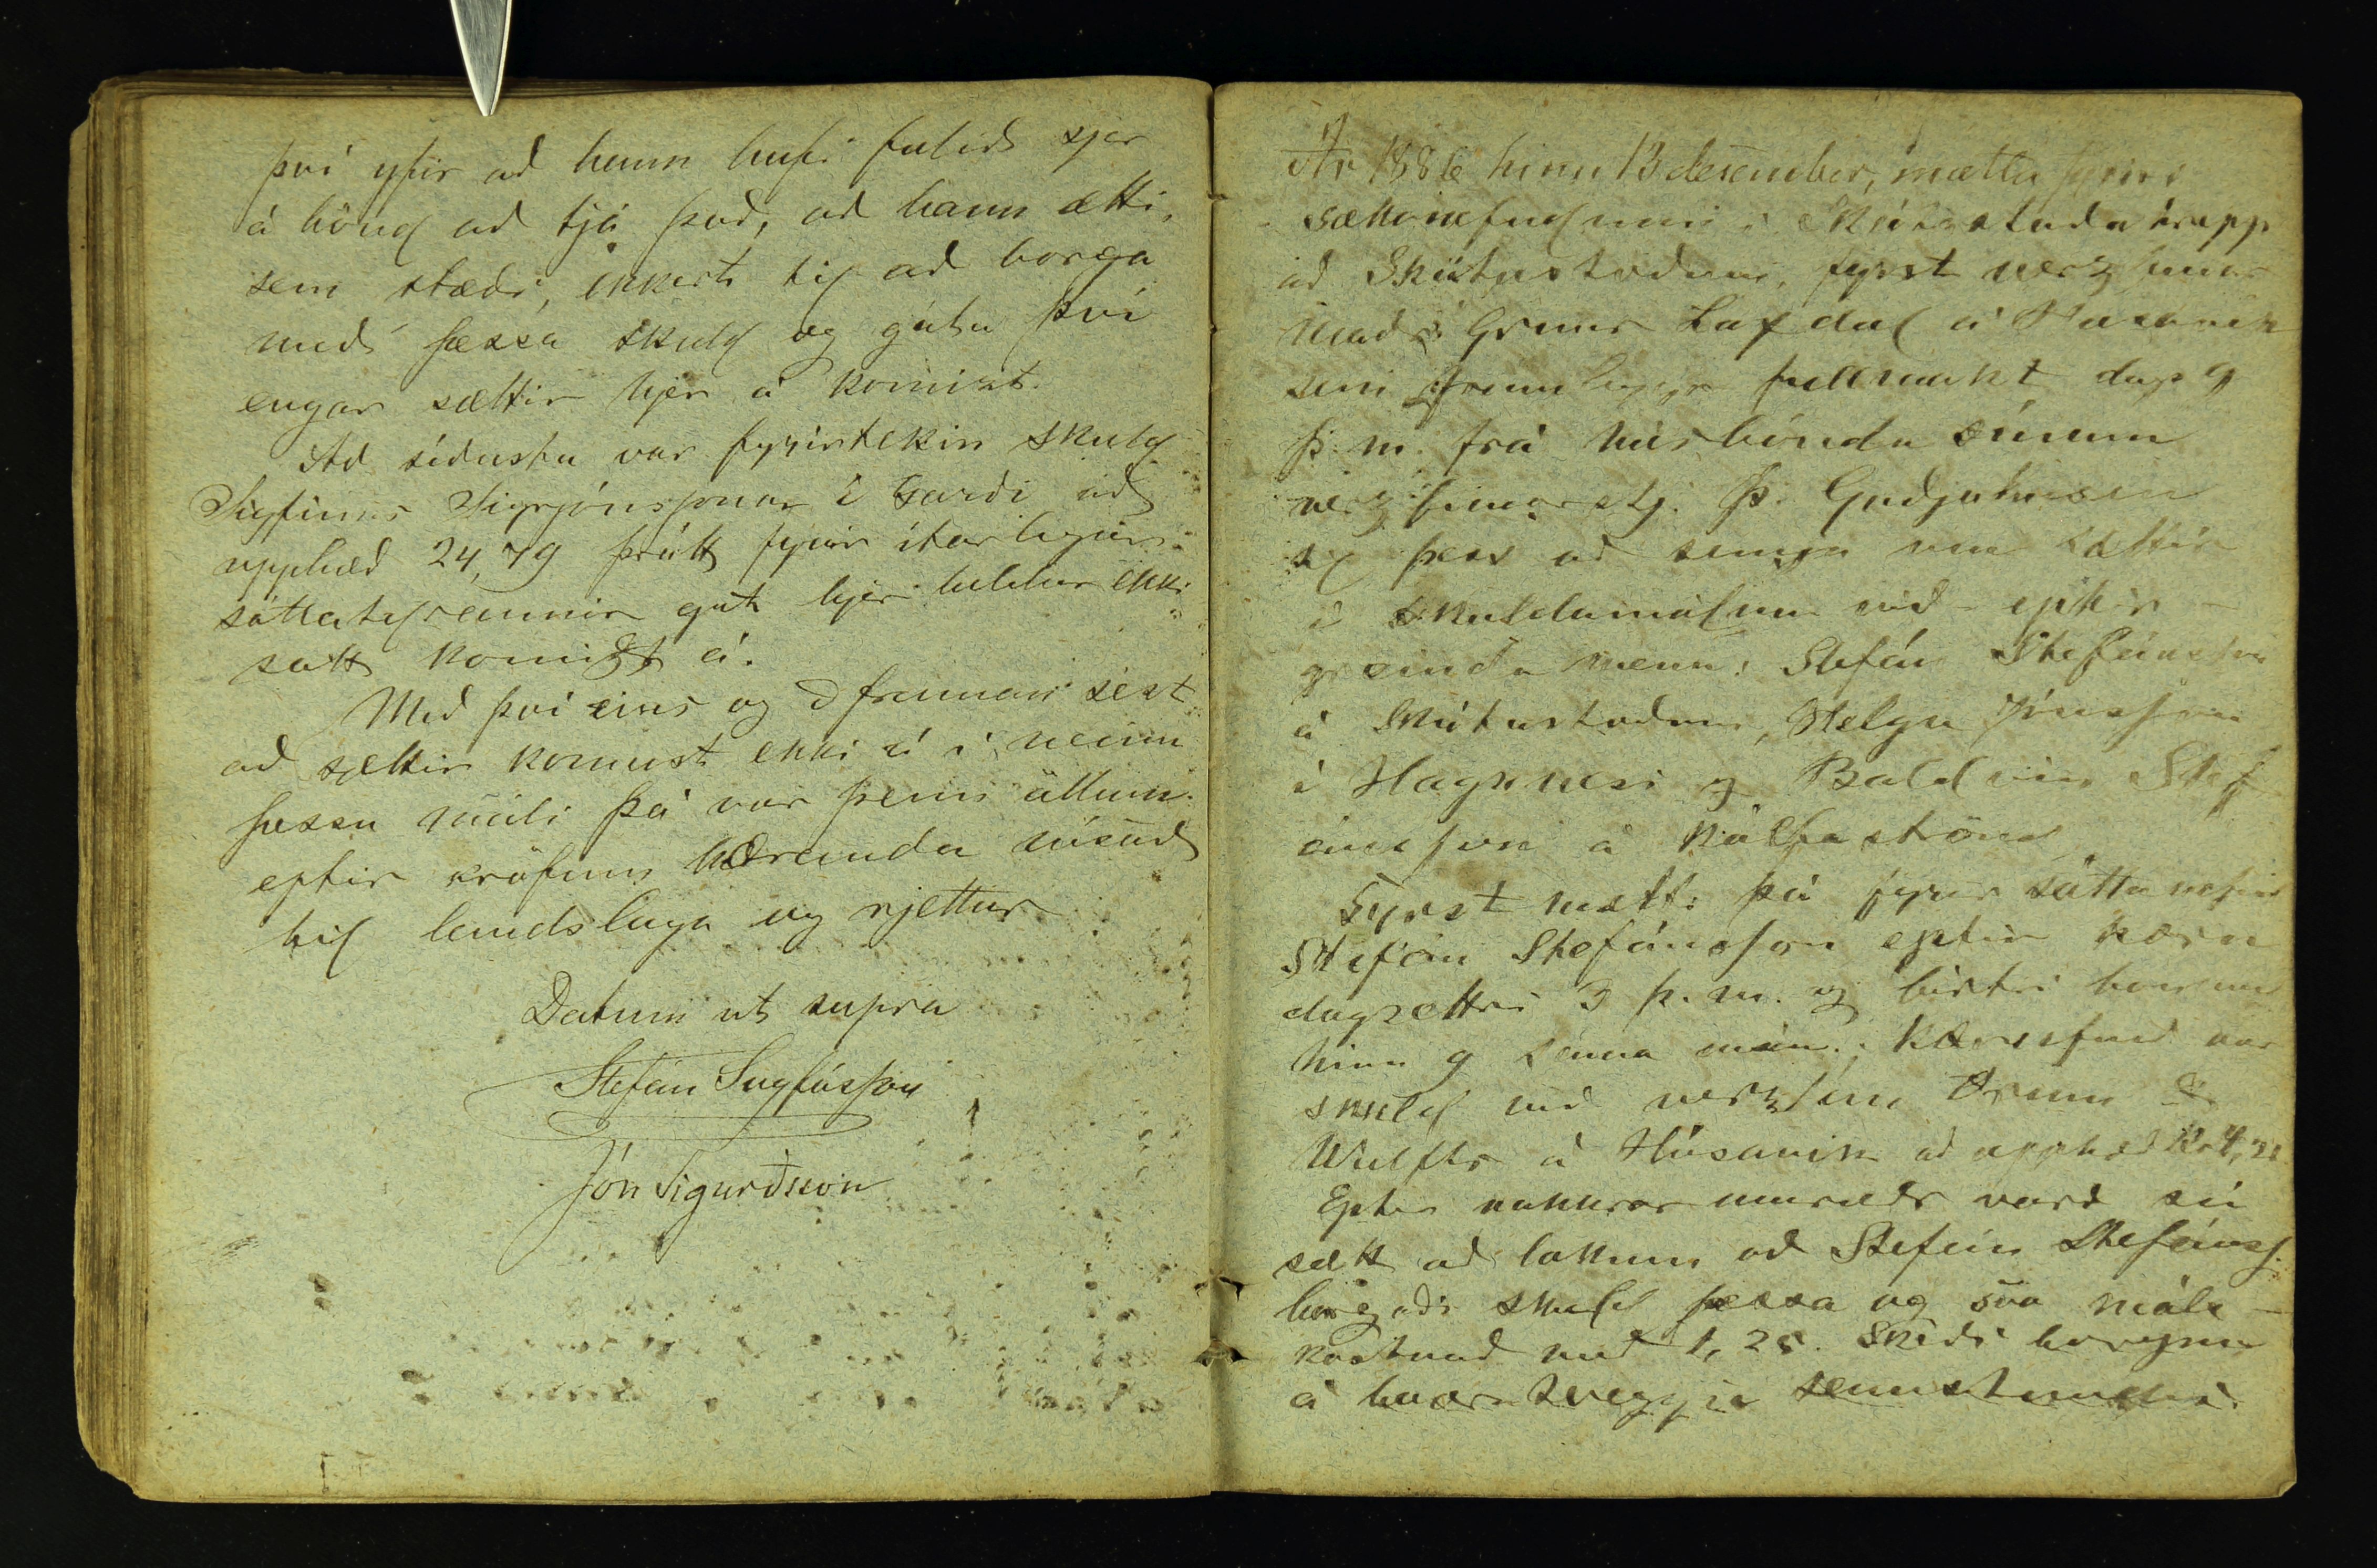 því yfir að hann hafi falið sjer
á hönd að tjá það, að hann ætti,
sem stæði, ekkert til að borga
með þessa skuld og gátu því
engar sættir hjer á komist.
Að síðustu var fyrirtekin skuld
Sigfinns Sigrjónssonar í Garði að
upphæð 24,79 þrátt fyrir ítarlegar
sáttatilraunir gat hjer heldur ekki
satt komizt á.
Með því eins og að framan sést
að sættir komust ekki á í neinu
þessu máli þá var þeim öllum
eptir kröfum kæranda vísað
til landslaga og rjettar
Datum ut supra
Stefán Sigfússon
Jón Sigurðsson
Ár 1886 hinn 13 desember, mætta fyrir
sættanefndinni í Skútustaðahrepp
að Skútustöðum, fyrst verzlunar
maðr Grímur Laxdal á Húsavík
sem framleggr fullmakt dags 9
þ. m. frá húsbónda sínum
verzlunarstj. Þ. Guðjohnsen
til þess að semja um sættir
í skuldamálum við - eptir -
greinda menn: Stefán Stefánsson
á Skútustöðum, Helga Jónsson
á Haganesi og Baldvin Stef
ánsson á Kálfaströnd
Fyrst mætti þá fyrir sáttanefnd
Stefán Stefánsson eptir kæru
dagsettri 3 þ. m. og birtri honum
hinn 9 sama mán.; Kæruefnið var
skuld við verzlun Ørum &
Wulffs á Húsavík að upphæð Kr 4,21
Eptir nokkrar umræðr varð sú
sætt að lokum að Stefán Stefánss.
borgaði skuld þessa og svo máls-
kostnað með 1,25. Skeði borgun
á hvorutveggja samstundis.